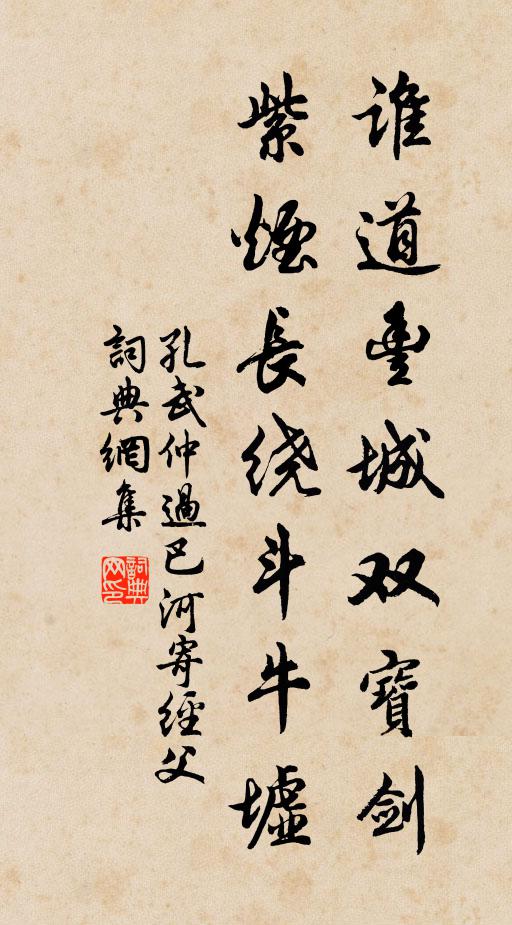 誰道豊城双寶剑
紫煙長绕斗牛墟
孔武仲過巴河寄經父
詞典網集
詞典网印